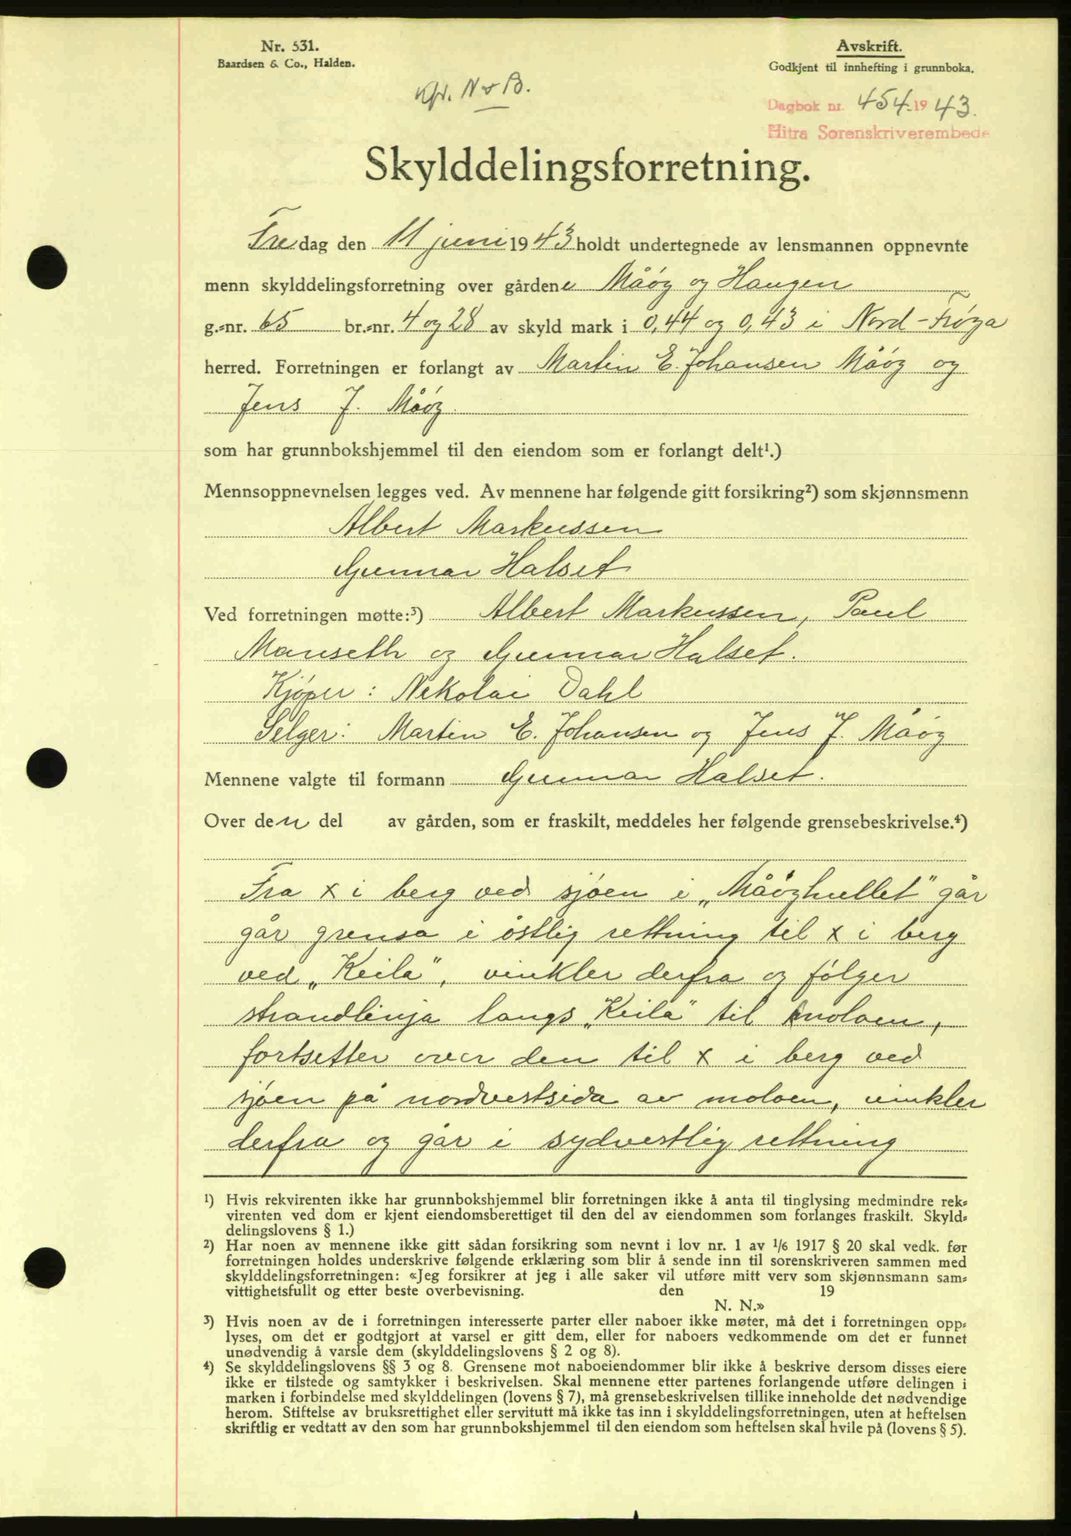 Nr. 531.
Baardsen & Co., Halden.
Avskrift.
Godkjent til innhefting i grunnboka.
Kfr. N & B.
Dagbok nr. 454. 1943.
Hitra Sorenskriverembede
Skylddelingsforretning.
Fredag den 11 juni 1943 holdt undertegnede av lensmannen oppnevnte
menn skylddelingsforretning over gårdene Måøg og Haugen
g.-nr. 65 br.-nr. 4 og 28 av skyld mark i 0,44 og 0,43 i Nord-Frøya
herred. Forretningen er forlangt av Martin E. Johansen Måøg og
Jens J. Måøg.
som har grunnbokshjemmel til den eiendom som er forlangt delt¹.)
Mennsoppnevnelsen legges ved. Av mennene har følgende gitt forsikring²) som skjønnsmenn
Albert Markussen
Gunnar Halset
Ved forretningen møtte:³) Albert Markussen, Paul
Mauseth og Gunnar Halset.
Kjøper: Nekolai Dahl
Selger: Martin E. Johansen og Jens J. Måøg
Mennene valgte til formann Gunnar Halset.
Over den del av gården, som er fraskilt, meddeles her følgende grensebeskrivelse.⁴)
Fra x i berg ved sjøen i „Måøghullet" går
går grensa i østlig rettning til x i berg
ved „Keila", vinkler derfra og følger
strandlinja langs „Keila" til moloen,
fortsetter over den til x i berg ved
sjøen på nordvestsida av moloen, vinkler
derfra og går i sydvestlig rettning
¹) Hvis rekvirenten ikke har grunnbokshjemmel blir forretningen ikke å anta til tinglysing medmindre rek-
virenten ved dom er kjent eiendomsberettiget til den del av eiendommen som forlanges fraskilt. Skyld-
delingslovens § 1.)
²) Har noen av mennene ikke gitt sådan forsikring som nevnt i lov nr. 1 av 1/6 1917 § 20 skal vedk. før
forretningen holdes underskrive følgende erklæring som blir å sende inn til sorenskriveren sammen med
skylddelingsforretningen: «Jeg forsikrer at jeg i alle saker vil utføre mitt verv som skjønnsmann sam-
vittighetsfullt og etter beste overbevisning. den 19
N. N.»
³) Hvis noen av de i forretningen interesserte parter eller naboer ikke møter, må det i forretningen opp-
lyses, om det er godtgjort at varsel er gitt dem, eller for naboers vedkommende om det er funnet
unødvendig å varsle dem (skylddelingslovens § 2 og 8).
⁴) Se skylddelingslovens §§ 3 og 8. Grensene mot naboeiendommer blir ikke å beskrive dersom disses eiere
ikke er tilstede og samtykker i beskrivelsen. Skal mennene etter partenes forlangende utføre delingen i
marken i forbindelse med skylddelingen (lovens § 7), må grensebeskrivelsen tillike inneholde det nødvendige
herom. Stiftelse av bruksrettighet eller servitutt må ikke tas inn i skylddelingsforretningen, uten at heftelsen
skriftlig er vedtatt av den som har grunnbokshjemmel til den eiendom som heftelsen skal hvile på (lovens § 5).